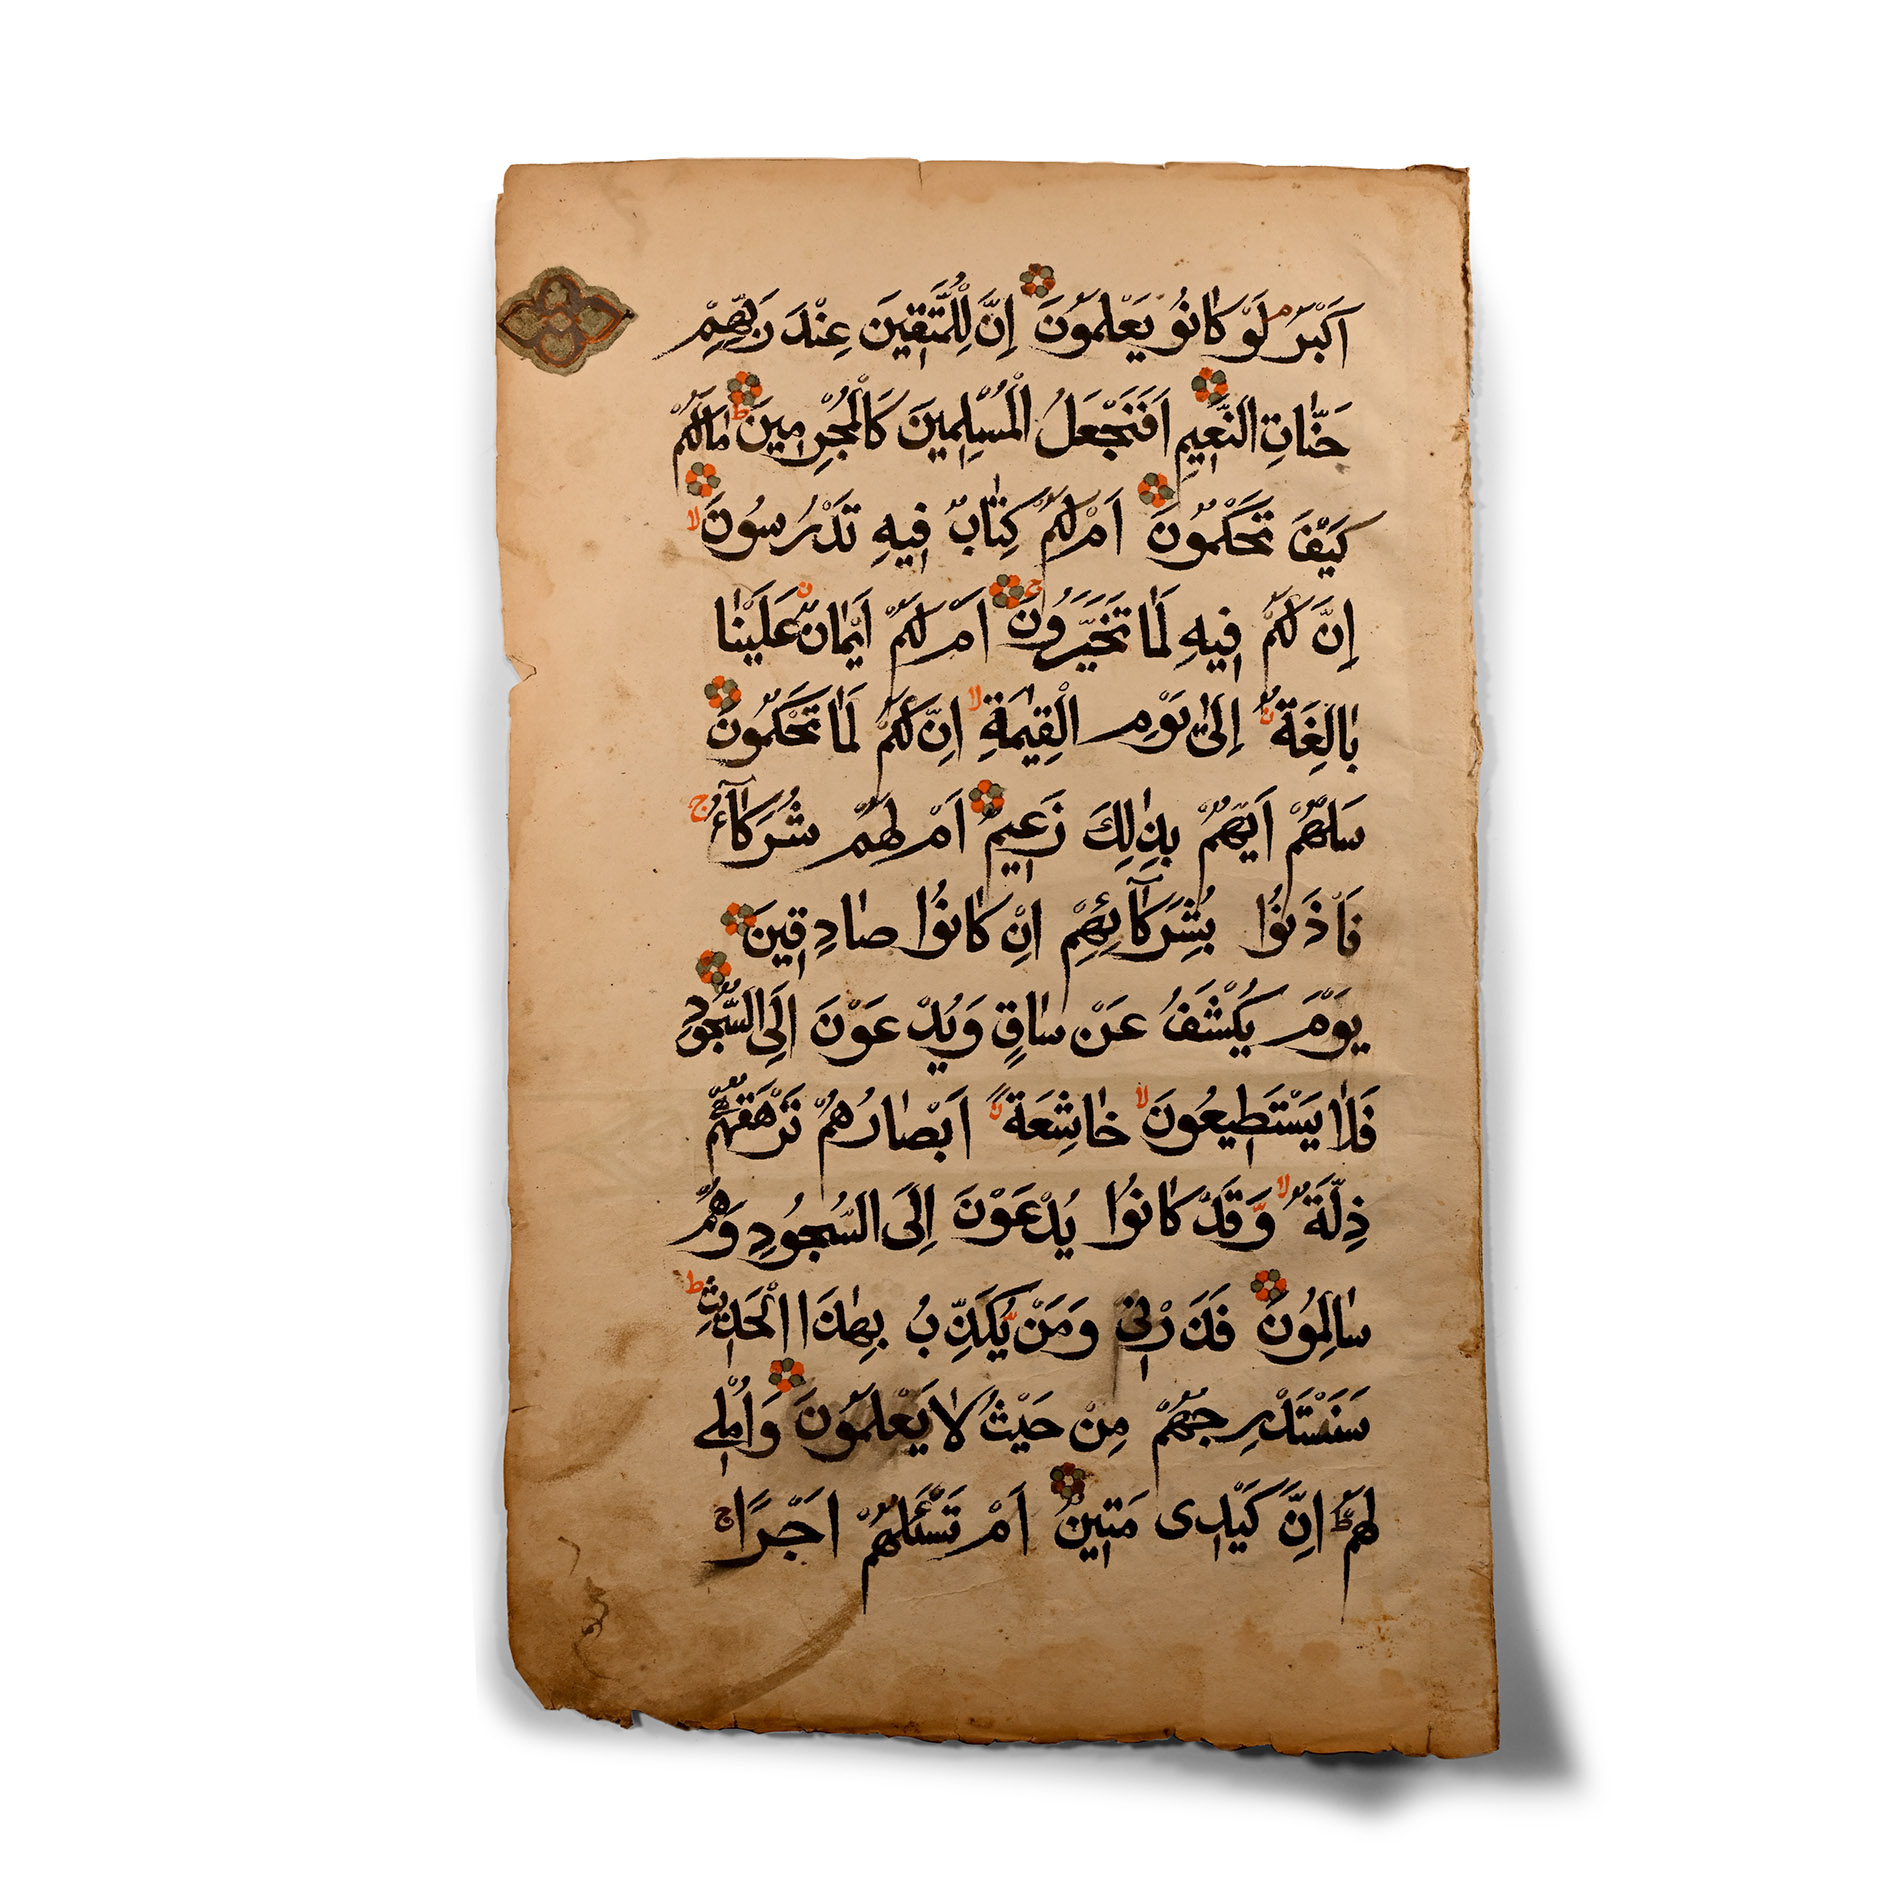 اَكْبَرُ م لَوْ كَانُو يَعْلَمُونَ اِنَّ لِلْمُتَّقِينَ عِنْدَ رَبِّهِمْ
جَنَّاتِ النَّعِيمِ اَفَنَجْعَلُ الْمُسْلِمِينَ كَالْمُجْرِمِينَ ط مَالَكُمْ
كَيْفَ تَحْكُمُونَ اَمْ لَكُمْ كِتَابٌ فِيهِ تَدْرُسُونَ لا
اِنَّ لَكُمْ فِيهِ لَمَا تَخَيَّرُونَ ج اَمْ لَكُمْ اَيْمَانٌ عَلَيْنَا
بَالِغَةٌ اِلَى يَوْمِ الْقِيٰمَةِ لا اِنَّ لَكُمْ لَمَا تَحْكُمُونَ
سَلْهُمْ اَيُّهُمْ بِذٰلِكَ زَعِيمٌ اَمْ لَهُمْ شُرَكَآءُ ج
فَأْذَنُوْا بِشُرَكَآئِهِمْ اِنْ كَانُوْا صَادِقِينَ
يَوْمَ يُكْشَفُ عَنْ سَاقٍ وَيُدْعَوْنَ اِلَى السُّجُودِ
فَلَا يَسْتَطِيعُونَ لا خَاشِعَةً اَبْصَارُهُمْ تَرْهَقُهُمْ
ذِلَّةٌ لا وَقَدْ كَانُوْا يُدْعَوْنَ اِلَى السُّجُودِ وَهُمْ
سَالِمُونَ فَذَرْنِي وَمَنْ يُكَذِّبُ بِهٰذَا الْحَدِيثِ ط
سَنَسْتَدْرِجُهُمْ مِنْ حَيْثُ لَا يَعْلَمُونَ وَاُمْلِي
لَهُمْ ط اِنَّ كَيْدِى مَتِينٌ اَمْ تَسْئَلُهُمْ اَجْرًا ج